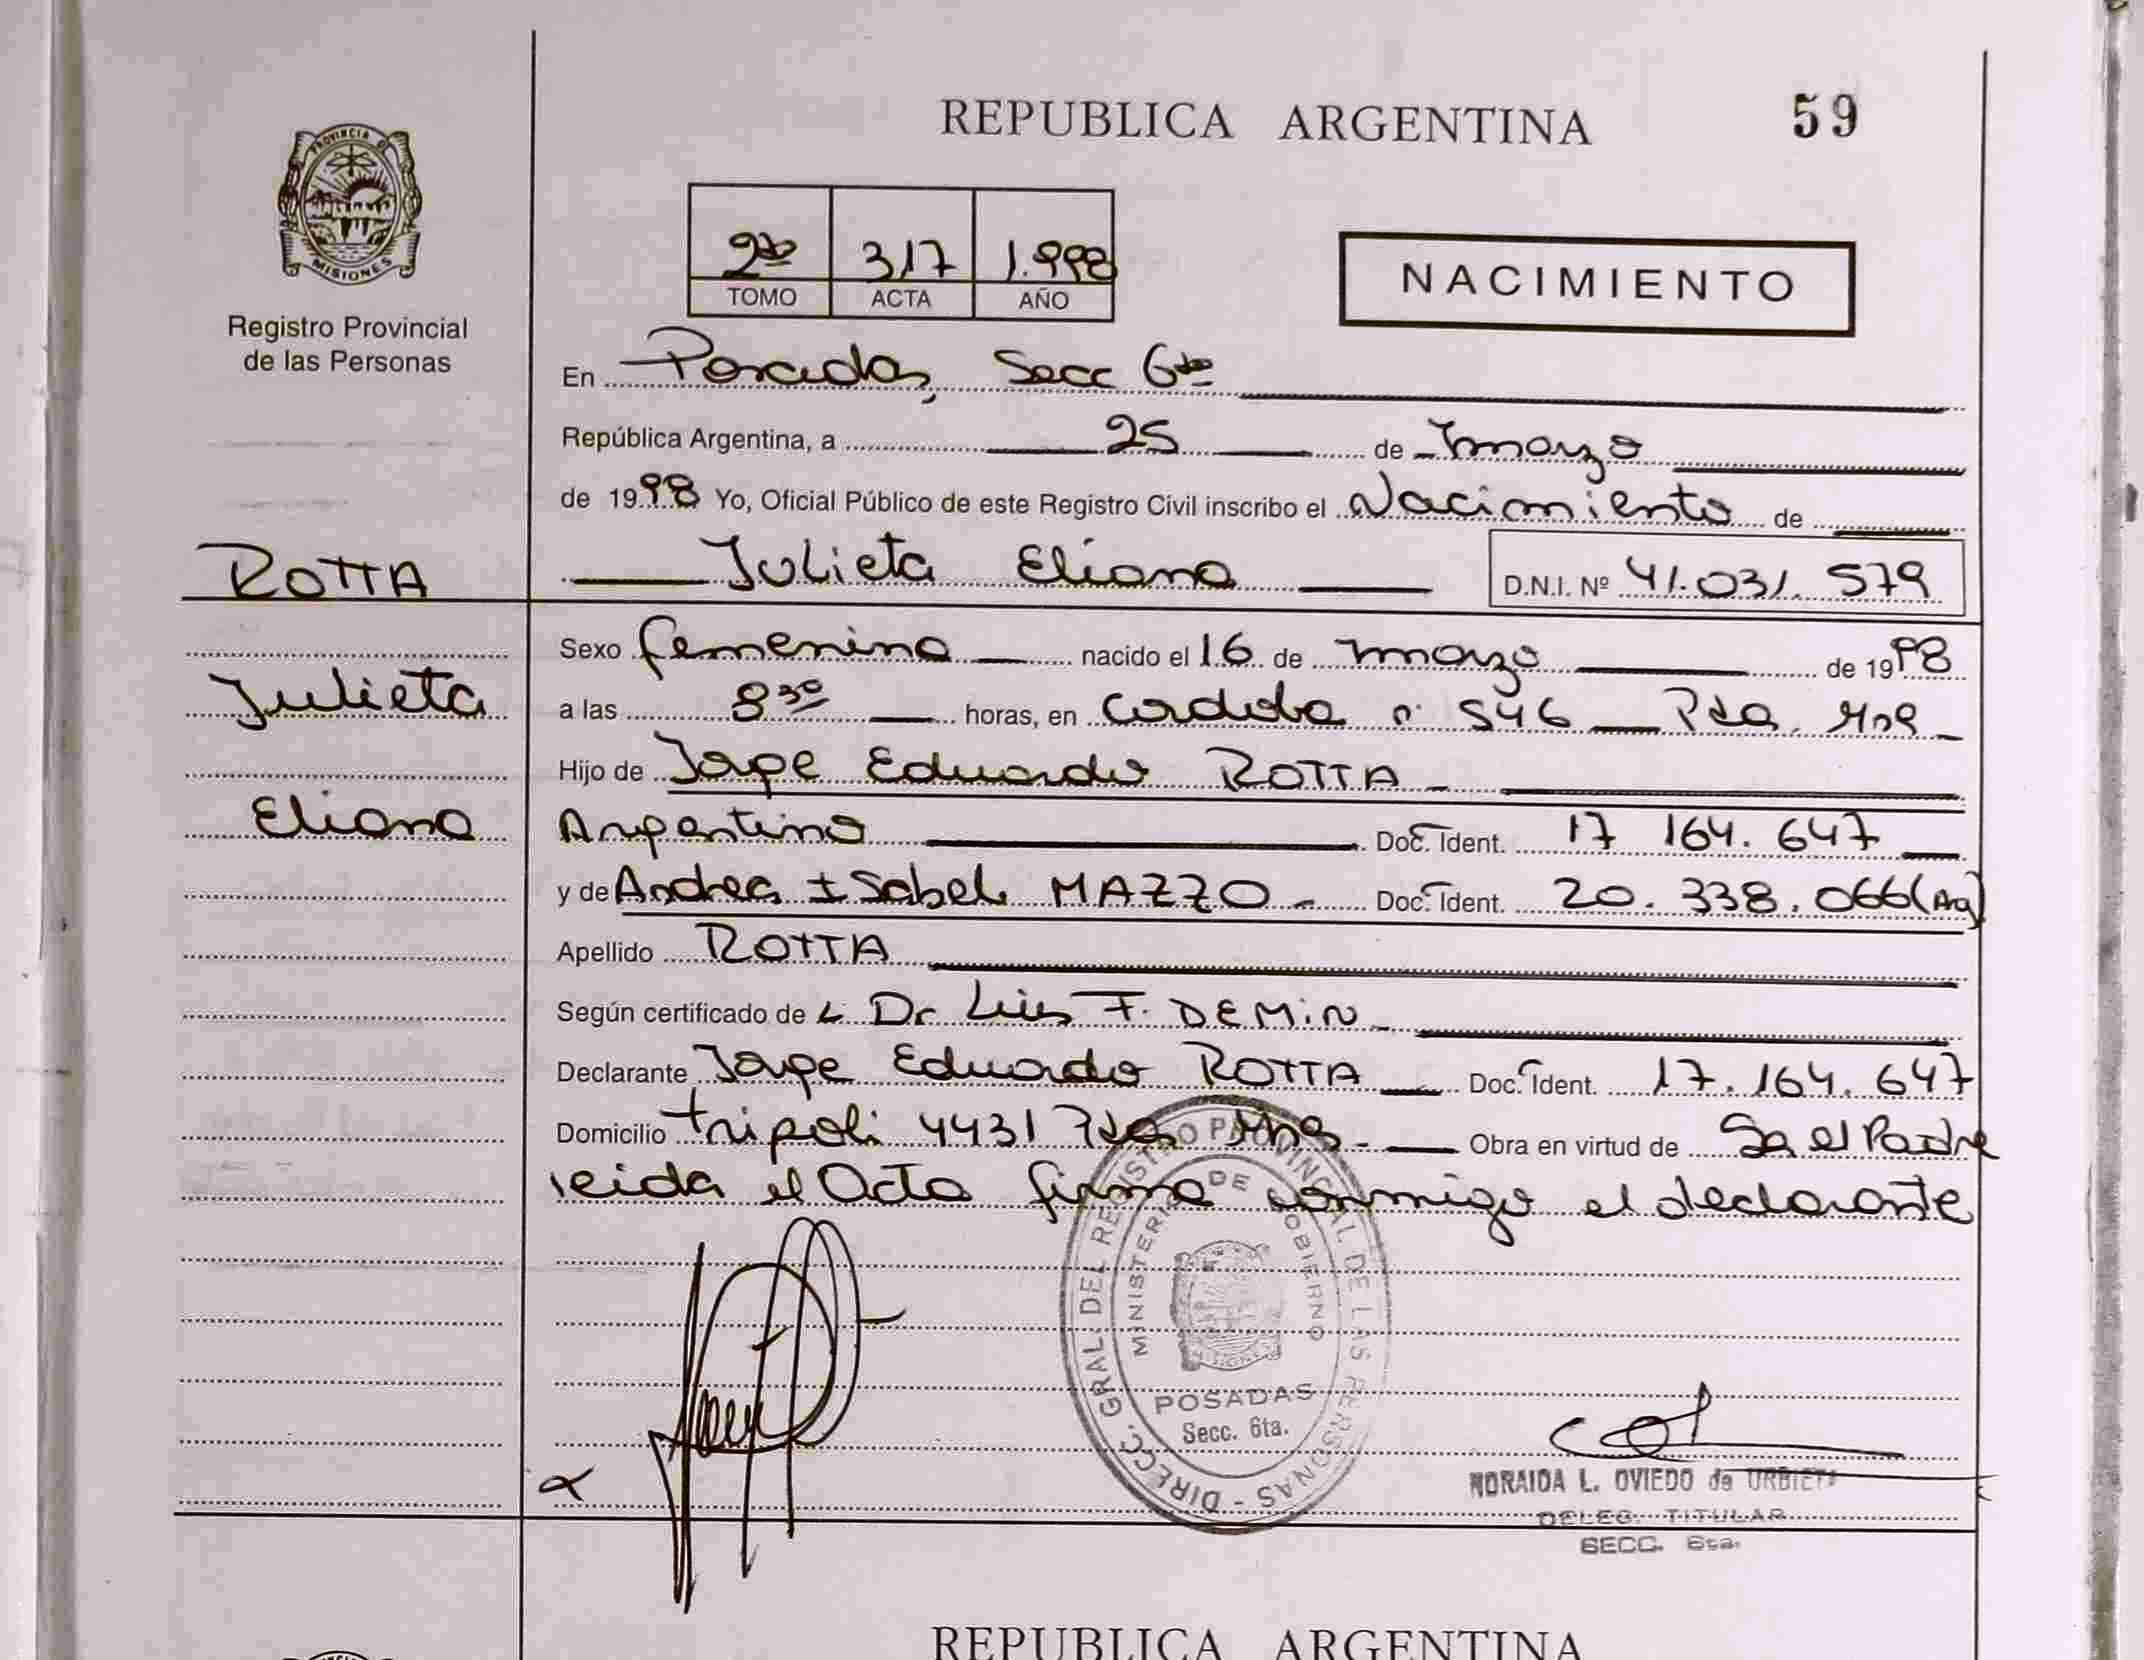 REPUBLICA ARGENTINA 59
PROVINCIA DE
MISIONES
Registro Provincial
de las Personas
2do 317 1.998
TOMO ACTA AÑO
NACIMIENTO
En Posadas, Secc 6ta
República Argentina, a 25 de marzo
de 1998 Yo, Oficial Público de este Registro Civil inscribo el Nacimiento de
ROTTA
Julieta
Eliana
Julieta Eliana D.N.I. Nº 41.031.579
Sexo femenino nacido el 16 de marzo de 1998
a las 8 30 horas, en Cordoba n° 546 Pdas. Mnes
Hijo de Jorge Eduardo ROTTA
Argentino Doc. Ident. 17 164.647
y de Andrea Isabel MAZZO Doc. Ident. 20.338.066 (Arg)
Apellido ROTTA
Según certificado de Dr Luis F. DEMIN
Declarante Jorge Eduardo ROTTA Doc. Ident. 17.164.647
Domicilio tripoli 4431 Pdas Mnes Obra en virtud de Ser el Padre
leida el Acta firma conmigo el declarante
DIRECC. GRAL. DEL REGISTRO PROVINCIAL DE LAS PERSONAS
MINISTERIO DE GOBIERNO
MISIONES
POSADAS
Secc. 6ta.
NORAIDA L. OVIEDO de URBIETA
DELEG. TITULAR
SECC. 6ta.
REPUBLICA ARGENTINA